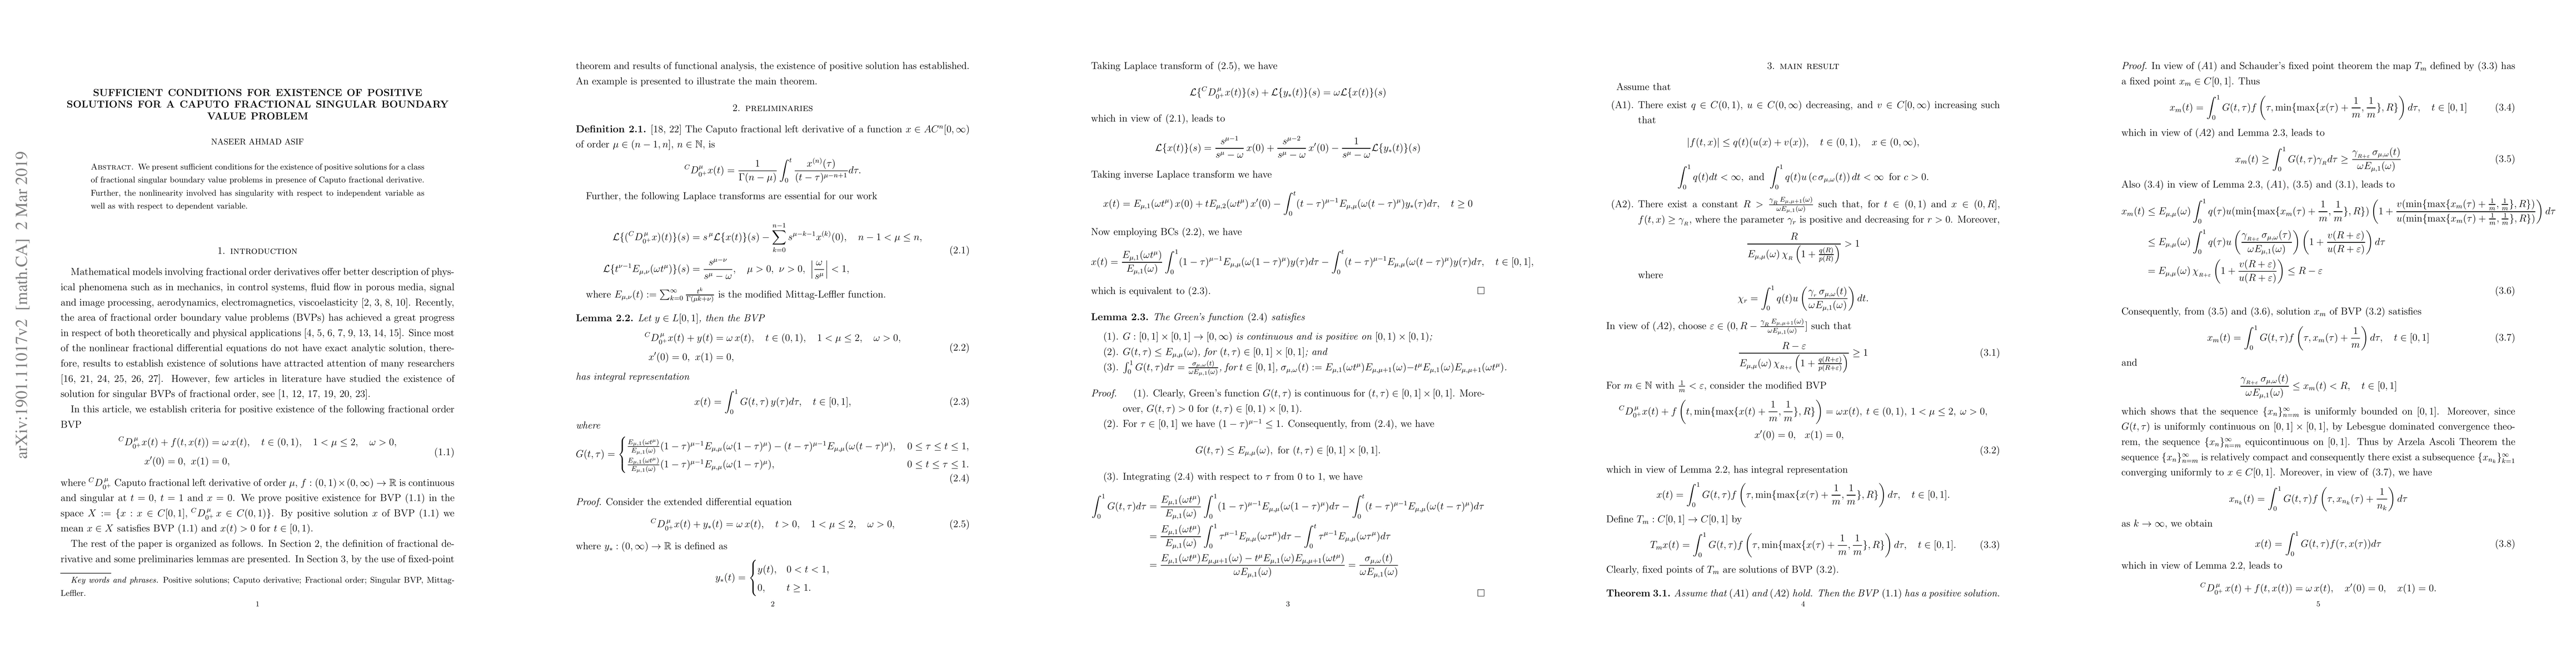 arXiv:1901.11017v2 [math.CA] 2 Mar 2019
SUFFICIENT CONDITIONS FOR EXISTENCE OF POSITIVE
SOLUTIONS FOR A CAPUTO FRACTIONAL SINGULAR BOUNDARY
VALUE PROBLEM
NASEER AHMAD ASIF
Abstract. We present sufficient conditions for the existence of positive solutions for a class
of fractional singular boundary value problems in presence of Caputo fractional derivative.
Further, the nonlinearity involved has singularity with respect to independent variable as
well as with respect to dependent variable.
1. introduction
Mathematical models involving fractional order derivatives offer better description of phys-
ical phenomena such as in mechanics, in control systems, fluid flow in porous media, signal
and image processing, aerodynamics, electromagnetics, viscoelasticity [2, 3, 8, 10]. Recently,
the area of fractional order boundary value problems (BVPs) has achieved a great progress
in respect of both theoretically and physical applications [4, 5, 6, 7, 9, 13, 14, 15]. Since most
of the nonlinear fractional differential equations do not have exact analytic solution, there-
fore, results to establish existence of solutions have attracted attention of many researchers
[16, 21, 24, 25, 26, 27]. However, few articles in literature have studied the existence of
solution for singular BVPs of fractional order, see [1, 12, 17, 19, 20, 23].
In this article, we establish criteria for positive existence of the following fractional order
BVP
^C D^μ_{0+} x(t) + f(t, x(t)) = ω x(t), t ∈ (0, 1), 1 < μ ≤ 2, ω > 0,
x′(0) = 0, x(1) = 0, (1.1)
where ^C D^μ_{0+} Caputo fractional left derivative of order μ, f : (0, 1)×(0, ∞) → ℝ is continuous
and singular at t = 0, t = 1 and x = 0. We prove positive existence for BVP (1.1) in the
space X := {x : x ∈ C[0, 1], ^C D^μ_{0+} x ∈ C(0, 1)}. By positive solution x of BVP (1.1) we
mean x ∈ X satisfies BVP (1.1) and x(t) > 0 for t ∈ [0, 1).
The rest of the paper is organized as follows. In Section 2, the definition of fractional de-
rivative and some preliminaries lemmas are presented. In Section 3, by the use of fixed-point
Key words and phrases. Positive solutions; Caputo derivative; Fractional order; Singular BVP, Mittag-
Leffler.
1
theorem and results of functional analysis, the existence of positive solution has established.
An example is presented to illustrate the main theorem.
2. preliminaries
Definition 2.1. [18, 22] The Caputo fractional left derivative of a function x ∈ AC^n[0, ∞)
of order μ ∈ (n − 1, n], n ∈ ℕ, is
^C D^μ_{0+} x(t) = \frac{1}{Γ(n − μ)} ∫_0^t \frac{x^{(n)}(τ)}{(t − τ)^{μ−n+1}} dτ.
Further, the following Laplace transforms are essential for our work
ℒ{(^C D^μ_{0+} x)(t)}(s) = s^μ ℒ{x(t)}(s) − ∑_{k=0}^{n−1} s^{μ−k−1} x^{(k)}(0), n − 1 < μ ≤ n,
(2.1)
ℒ{t^{ν−1} E_{μ,ν}(ωt^μ)}(s) = \frac{s^{μ−ν}}{s^μ − ω}, μ > 0, ν > 0, |\frac{ω}{s^μ}| < 1,
where E_{μ,ν}(t) := ∑_{k=0}^∞ \frac{t^k}{Γ(μk+ν)} is the modified Mittag-Leffler function.
Lemma 2.2. Let y ∈ L[0, 1], then the BVP
^C D^μ_{0+} x(t) + y(t) = ω x(t), t ∈ (0, 1), 1 < μ ≤ 2, ω > 0,
x′(0) = 0, x(1) = 0, (2.2)
has integral representation
x(t) = ∫_0^1 G(t, τ) y(τ)dτ, t ∈ [0, 1], (2.3)
where
G(t, τ) = { \frac{E_{μ,1}(ωt^μ)}{E_{μ,1}(ω)} (1 − τ)^{μ−1} E_{μ,μ}(ω(1 − τ)^μ) − (t − τ)^{μ−1} E_{μ,μ}(ω(t − τ)^μ), 0 ≤ τ ≤ t ≤ 1,
\frac{E_{μ,1}(ωt^μ)}{E_{μ,1}(ω)} (1 − τ)^{μ−1} E_{μ,μ}(ω(1 − τ)^μ), 0 ≤ t ≤ τ ≤ 1.
(2.4)
Proof. Consider the extended differential equation
^C D^μ_{0+} x(t) + y_*(t) = ω x(t), t > 0, 1 < μ ≤ 2, ω > 0, (2.5)
where y_* : (0, ∞) → ℝ is defined as
y_*(t) = { y(t), 0 < t < 1,
0, t ≥ 1.
2
Taking Laplace transform of (2.5), we have
ℒ{^C D^μ_{0+} x(t)}(s) + ℒ{y_*(t)}(s) = ωℒ{x(t)}(s)
which in view of (2.1), leads to
ℒ{x(t)}(s) = \frac{s^{μ−1}}{s^μ − ω} x(0) + \frac{s^{μ−2}}{s^μ − ω} x′(0) − \frac{1}{s^μ − ω} ℒ{y_*(t)}(s)
Taking inverse Laplace transform we have
x(t) = E_{μ,1}(ωt^μ) x(0) + tE_{μ,2}(ωt^μ) x′(0) − ∫_0^t (t − τ)^{μ−1} E_{μ,μ}(ω(t − τ)^μ) y_*(τ)dτ, t ≥ 0
Now employing BCs (2.2), we have
x(t) = \frac{E_{μ,1}(ωt^μ)}{E_{μ,1}(ω)} ∫_0^1 (1 − τ)^{μ−1} E_{μ,μ}(ω(1 − τ)^μ) y(τ)dτ − ∫_0^t (t − τ)^{μ−1} E_{μ,μ}(ω(t − τ)^μ) y(τ)dτ, t ∈ [0, 1],
which is equivalent to (2.3). □
Lemma 2.3. The Green's function (2.4) satisfies
(1). G : [0, 1] × [0, 1] → [0, ∞) is continuous and is positive on [0, 1) × [0, 1);
(2). G(t, τ) ≤ E_{μ,μ}(ω), for (t, τ) ∈ [0, 1] × [0, 1]; and
(3). ∫_0^1 G(t, τ)dτ = \frac{σ_{μ,ω}(t)}{ωE_{μ,1}(ω)}, for t ∈ [0, 1], σ_{μ,ω}(t) := E_{μ,1}(ωt^μ)E_{μ,μ+1}(ω)−t^μ E_{μ,1}(ω)E_{μ,μ+1}(ωt^μ).
Proof. (1). Clearly, Green's function G(t, τ) is continuous for (t, τ) ∈ [0, 1] × [0, 1]. More-
over, G(t, τ) > 0 for (t, τ) ∈ [0, 1) × [0, 1).
(2). For τ ∈ [0, 1] we have (1 − τ)^{μ−1} ≤ 1. Consequently, from (2.4), we have
G(t, τ) ≤ E_{μ,μ}(ω), for (t, τ) ∈ [0, 1] × [0, 1].
(3). Integrating (2.4) with respect to τ from 0 to 1, we have
∫_0^1 G(t, τ)dτ = \frac{E_{μ,1}(ωt^μ)}{E_{μ,1}(ω)} ∫_0^1 (1 − τ)^{μ−1} E_{μ,μ}(ω(1 − τ)^μ)dτ − ∫_0^t (t − τ)^{μ−1} E_{μ,μ}(ω(t − τ)^μ)dτ
= \frac{E_{μ,1}(ωt^μ)}{E_{μ,1}(ω)} ∫_0^1 τ^{μ−1} E_{μ,μ}(ωτ^μ)dτ − ∫_0^t τ^{μ−1} E_{μ,μ}(ωτ^μ)dτ
= \frac{E_{μ,1}(ωt^μ)E_{μ,μ+1}(ω) − t^μ E_{μ,1}(ω)E_{μ,μ+1}(ωt^μ)}{ωE_{μ,1}(ω)} = \frac{σ_{μ,ω}(t)}{ωE_{μ,1}(ω)}
□
3
3. main result
Assume that
(A1). There exist q ∈ C(0, 1), u ∈ C(0, ∞) decreasing, and v ∈ C[0, ∞) increasing such
that
|f(t, x)| ≤ q(t)(u(x) + v(x)), t ∈ (0, 1), x ∈ (0, ∞),
∫_0^1 q(t)dt < ∞, and ∫_0^1 q(t)u (c σ_{μ,ω}(t)) dt < ∞ for c > 0.
(A2). There exists a constant R > \frac{γ_R E_{μ,μ+1}(ω)}{ωE_{μ,1}(ω)} such that, for t ∈ (0, 1) and x ∈ (0, R],
f(t, x) ≥ γ_R, where the parameter γ_r is positive and decreasing for r > 0. Moreover,
\frac{R}{E_{μ,μ}(ω) χ_R (1 + \frac{q(R)}{p(R)})} > 1
where
χ_r = ∫_0^1 q(t)u (\frac{γ_r σ_{μ,ω}(t)}{ωE_{μ,1}(ω)}) dt.
In view of (A2), choose ε ∈ (0, R − \frac{γ_R E_{μ,μ+1}(ω)}{ωE_{μ,1}(ω)}] such that
\frac{R − ε}{E_{μ,μ}(ω) χ_{R+ε} (1 + \frac{q(R+ε)}{p(R+ε)})} ≥ 1 (3.1)
For m ∈ ℕ with \frac{1}{m} < ε, consider the modified BVP
^C D^μ_{0+} x(t) + f (t, min{max{x(t) + \frac{1}{m}, \frac{1}{m}}, R}) = ωx(t), t ∈ (0, 1), 1 < μ ≤ 2, ω > 0,
x′(0) = 0, x(1) = 0,
(3.2)
which in view of Lemma 2.2, has integral representation
x(t) = ∫_0^1 G(t, τ)f (τ, min{max{x(τ) + \frac{1}{m}, \frac{1}{m}}, R}) dτ, t ∈ [0, 1].
Define T_m : C[0, 1] → C[0, 1] by
T_m x(t) = ∫_0^1 G(t, τ)f (τ, min{max{x(τ) + \frac{1}{m}, \frac{1}{m}}, R}) dτ, t ∈ [0, 1]. (3.3)
Clearly, fixed points of T_m are solutions of BVP (3.2).
Theorem 3.1. Assume that (A1) and (A2) hold. Then the BVP (1.1) has a positive solution.
4
Proof. In view of (A1) and Schauder's fixed point theorem the map T_m defined by (3.3) has
a fixed point x_m ∈ C[0, 1]. Thus
x_m(t) = ∫_0^1 G(t, τ)f (τ, min{max{x(τ) + \frac{1}{m}, \frac{1}{m}}, R}) dτ, t ∈ [0, 1] (3.4)
which in view of (A2) and Lemma 2.3, leads to
x_m(t) ≥ ∫_0^1 G(t, τ)γ_R dτ ≥ \frac{γ_{R+ε} σ_{μ,ω}(t)}{ωE_{μ,1}(ω)} (3.5)
Also (3.4) in view of Lemma 2.3, (A1), (3.5) and (3.1), leads to
x_m(t) ≤ E_{μ,μ}(ω) ∫_0^1 q(τ)u(min{max{x_m(τ) + \frac{1}{m}, \frac{1}{m}}, R}) (1 + \frac{v(min{max{x_m(τ) + \frac{1}{m}, \frac{1}{m}}, R})}{u(min{max{x_m(τ) + \frac{1}{m}, \frac{1}{m}}, R})}) dτ
≤ E_{μ,μ}(ω) ∫_0^1 q(τ)u (\frac{γ_{R+ε} σ_{μ,ω}(τ)}{ωE_{μ,1}(ω)}) (1 + \frac{v(R + ε)}{u(R + ε)}) dτ
= E_{μ,μ}(ω) χ_{R+ε} (1 + \frac{v(R + ε)}{u(R + ε)}) ≤ R − ε
(3.6)
Consequently, from (3.5) and (3.6), solution x_m of BVP (3.2) satisfies
x_m(t) = ∫_0^1 G(t, τ)f (τ, x_m(τ) + \frac{1}{m}) dτ, t ∈ [0, 1] (3.7)
and
\frac{γ_{R+ε} σ_{μ,ω}(t)}{ωE_{μ,1}(ω)} ≤ x_m(t) < R, t ∈ [0, 1]
which shows that the sequence {x_n}_{n=m}^∞ is uniformly bounded on [0, 1]. Moreover, since
G(t, τ) is uniformly continuous on [0, 1] × [0, 1], by Lebesgue dominated convergence theo-
rem, the sequence {x_n}_{n=m}^∞ equicontinuous on [0, 1]. Thus by Arzela Ascoli Theorem the
sequence {x_n}_{n=m}^∞ is relatively compact and consequently there exist a subsequence {x_{n_k}}_{k=1}^∞
converging uniformly to x ∈ C[0, 1]. Moreover, in view of (3.7), we have
x_{n_k}(t) = ∫_0^1 G(t, τ)f (τ, x_{n_k}(τ) + \frac{1}{n_k}) dτ
as k → ∞, we obtain
x(t) = ∫_0^1 G(t, τ)f(τ, x(τ))dτ (3.8)
which in view of Lemma 2.2, leads to
^C D^μ_{0+} x(t) + f(t, x(t)) = ω x(t), x′(0) = 0, x(1) = 0.
5